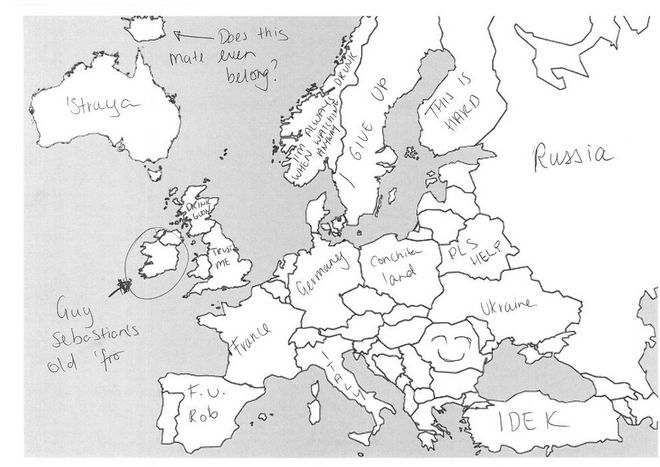 Does this
mate even
belong?
'Straya
I'M ALWAYS DRUNK
WHEN WATCHING
ANYWAY
I GIVE UP
THIS IS
HARD
Russia
DRINK
GOON
TRUST
ME
Germany
Conchita
land
PLS
HELP
Ukraine
Guy
Sebastian's
old 'fro
France
ITALY
F.U.
Rob
IDEK